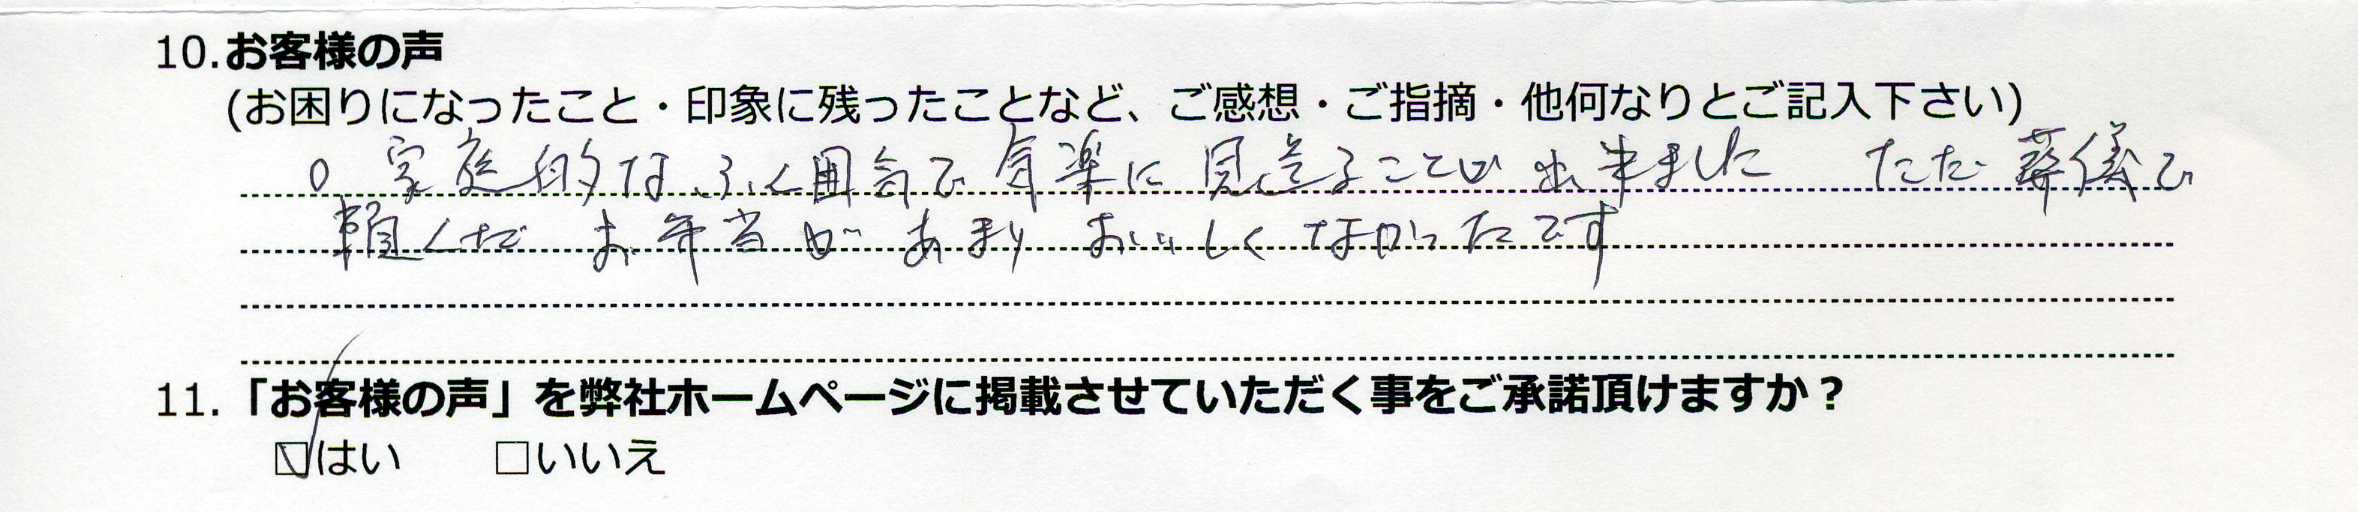 10.お客様の声
(お困りになったこと・印象に残ったことなど、ご感想・ご指摘・他何なりとご記入下さい)
○ 家庭的なふんい囲気で気楽に見送ることが出来ました ただ葬儀で
頼んだお弁当があまりおいしくなかったです
11.「お客様の声」を弊社ホームページに掲載させていただく事をご承諾頂けますか？
☑はい □いいえ